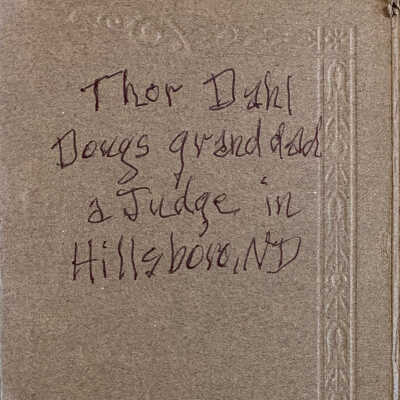 Thor Dahl
Dougs granddad
a Judge in
Hillsboro, ND